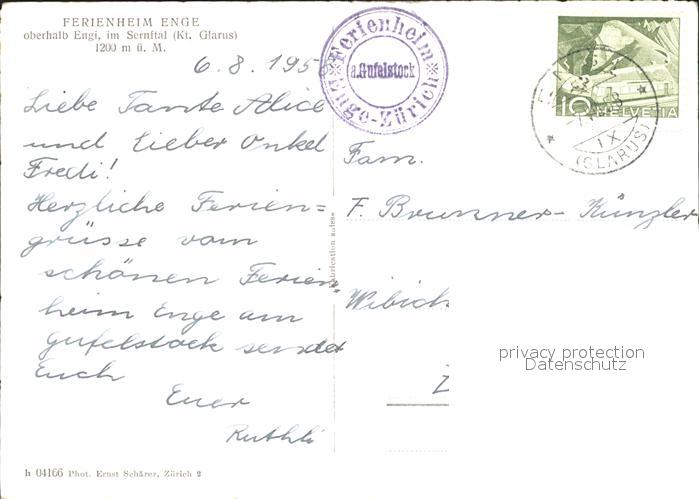 FERIENHEIM ENGE
oberhalb Engi, im Sernftal (Kt. Glarus)
1200 m ü. M.
6.8.195
Liebe Tante Alice
und lieber Onkel
Fredi!
Herzliche Ferien=
grüsse vom
schönen Ferien=
heim Enge am
Gufelstock sendet
Euch
Euer
Ruthli
h 04166 Phot. Ernst Schärer, Zürich 2
Ferienheim
a.Gufelstock
Enge-Zürich
HELVETIA
10
(GLARUS)
IX
Fam.
F. Brunner-Künzler
privacy protection
Datenschutz